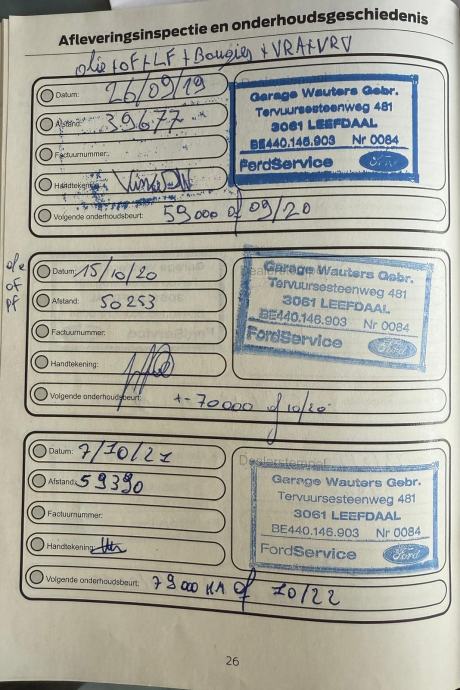 Afleveringsinspectie en onderhoudsgeschiedenis
olie + oF + LF + Bougies + VRA + VRV
Datum: 26/09/19
Afstand: 39677
Factuurnummer:
Handtekening:
Volgende onderhoudsbeurt: 59000 of 09/20
Garage Wauters Gebr.
Tervuursesteenweg 481
3061 LEEFDAAL
BE440.146.903 Nr 0084
FordService Ford
oF
pf
Datum: 15/10/20
Afstand: 50253
Factuurnummer:
Handtekening:
Volgende onderhoudsbeurt: +- 70000 of 10/20
Garage Wauters Gebr.
Tervuursesteenweg 481
3061 LEEFDAAL
BE440.146.903 Nr 0084
FordService Ford
Datum: 7/10/21
Afstand: 59390
Factuurnummer:
Handtekening:
Volgende onderhoudsbeurt: 79000 KM of 10/22
Dealerstempel
Garage Wauters Gebr.
Tervuursesteenweg 481
3061 LEEFDAAL
BE440.146.903 Nr 0084
FordService Ford
26